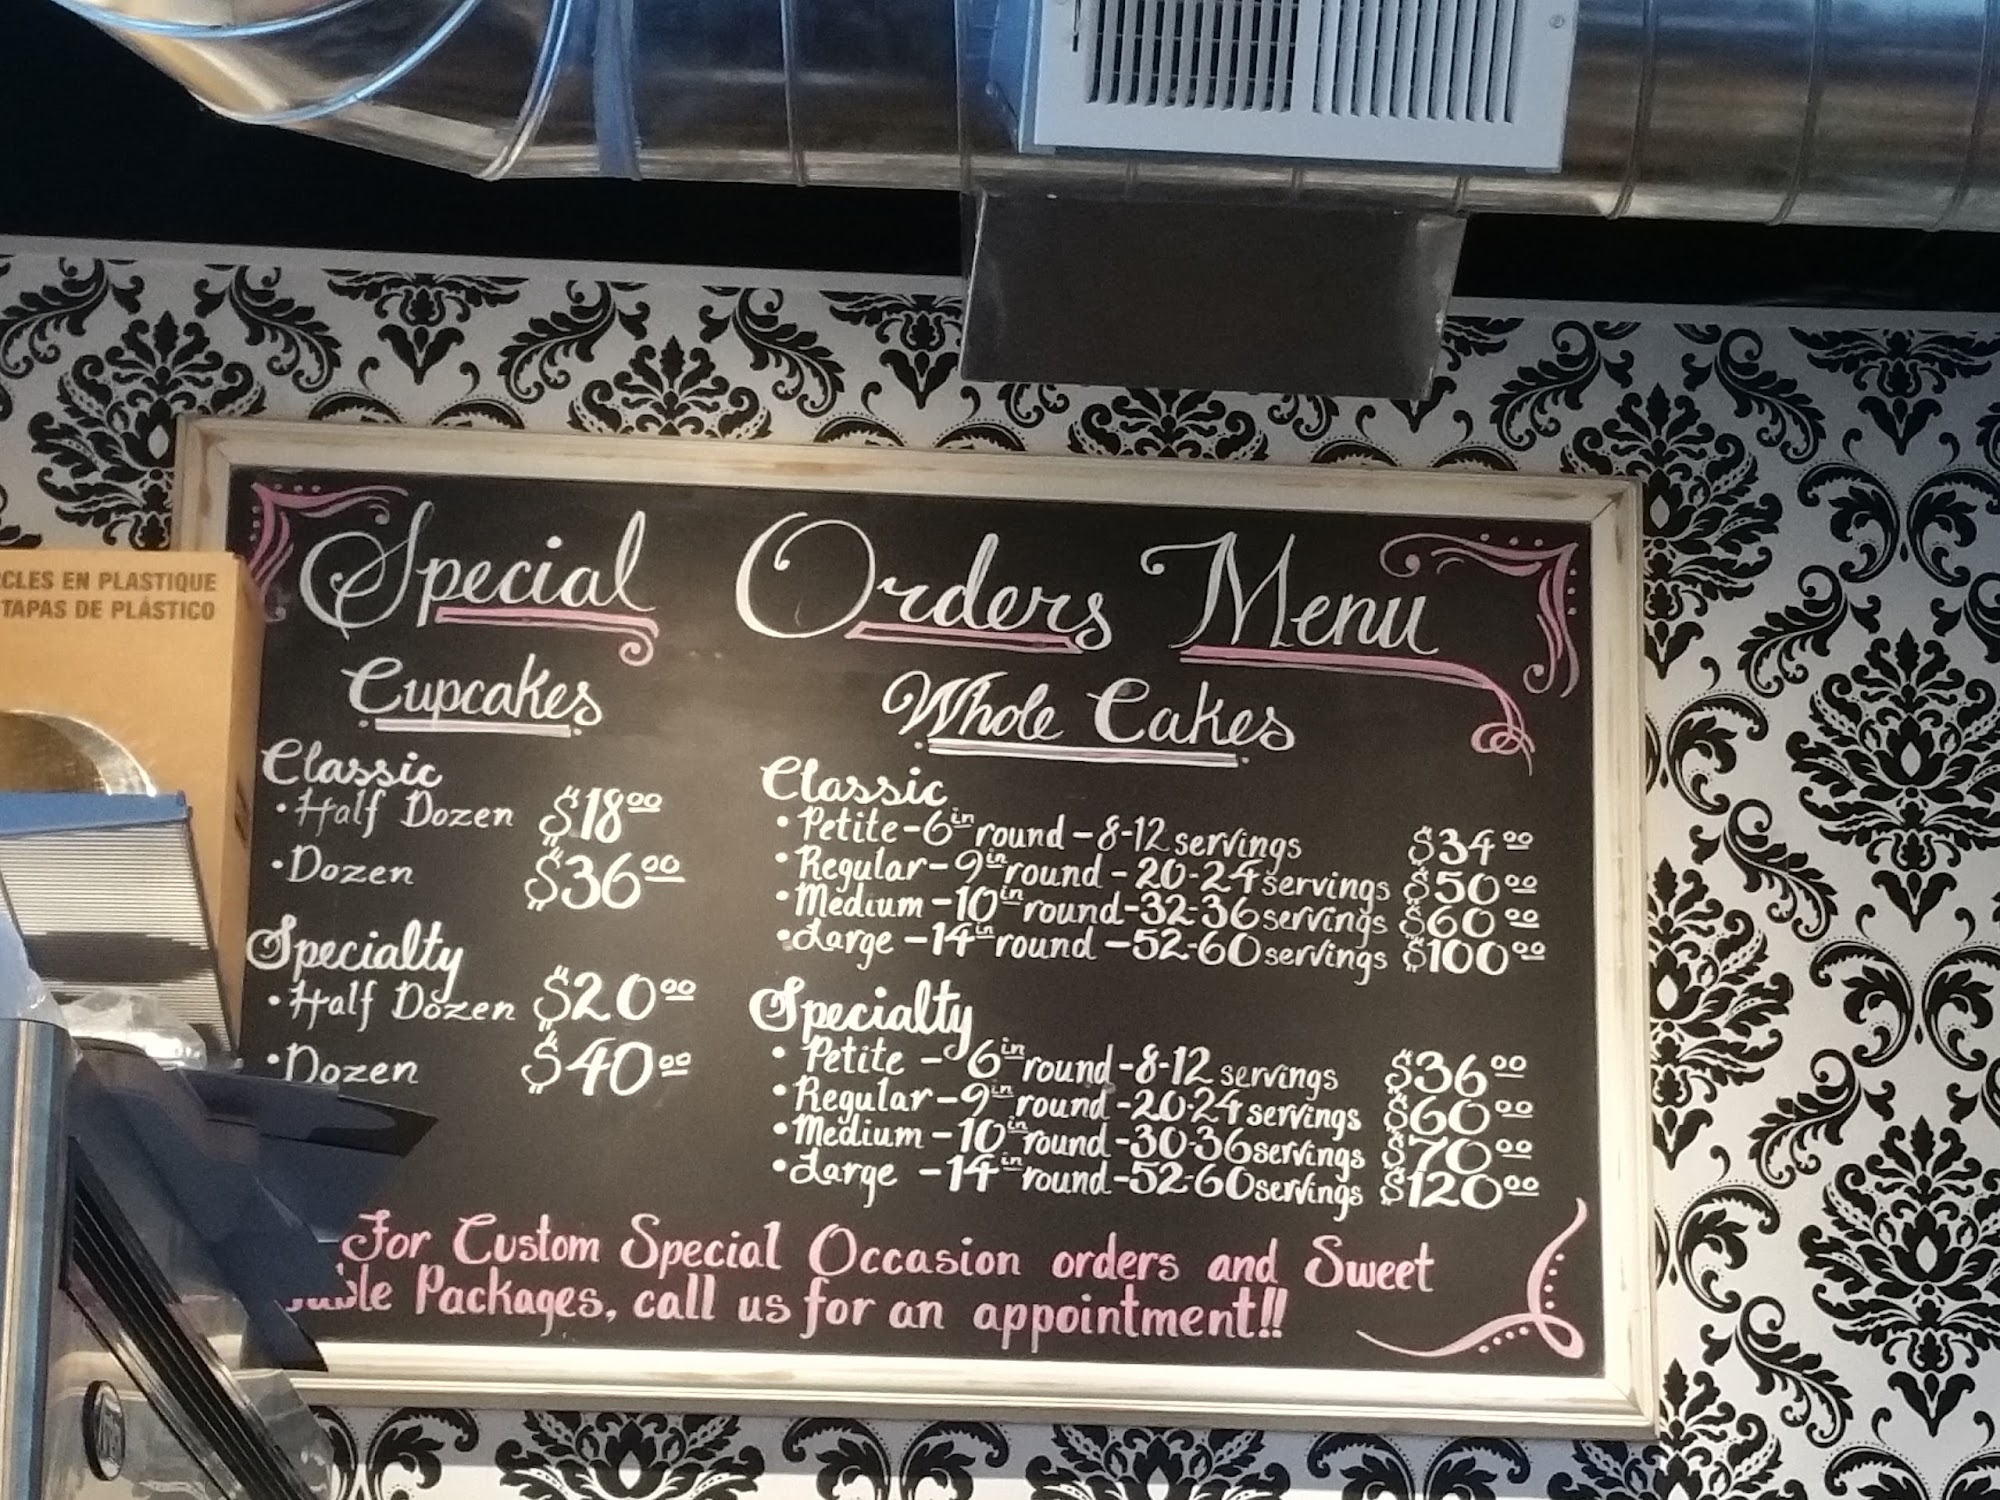 CLES EN PLASTIQUE
TAPAS DE PLÁSTICO
Special Orders Menu
Cupcakes
Classic
• Half Dozen $18.00
• Dozen $36.00
Specialty
• Half Dozen $20.00
• Dozen $40.00
Whole Cakes
Classic
• Petite - 6in round - 8-12 servings $34.00
• Regular - 9in round - 20-24 servings $50.00
• Medium - 10in round - 32-36 servings $60.00
• Large - 14in round - 52-60 servings $100.00
Specialty
• Petite - 6in round - 8-12 servings $36.00
• Regular - 9in round - 20-24 servings $60.00
• Medium - 10in round - 30-36 servings $70.00
• Large - 14in round - 52-60 servings $120.00
For Custom Special Occasion orders and Sweet
Packages, call us for an appointment!!